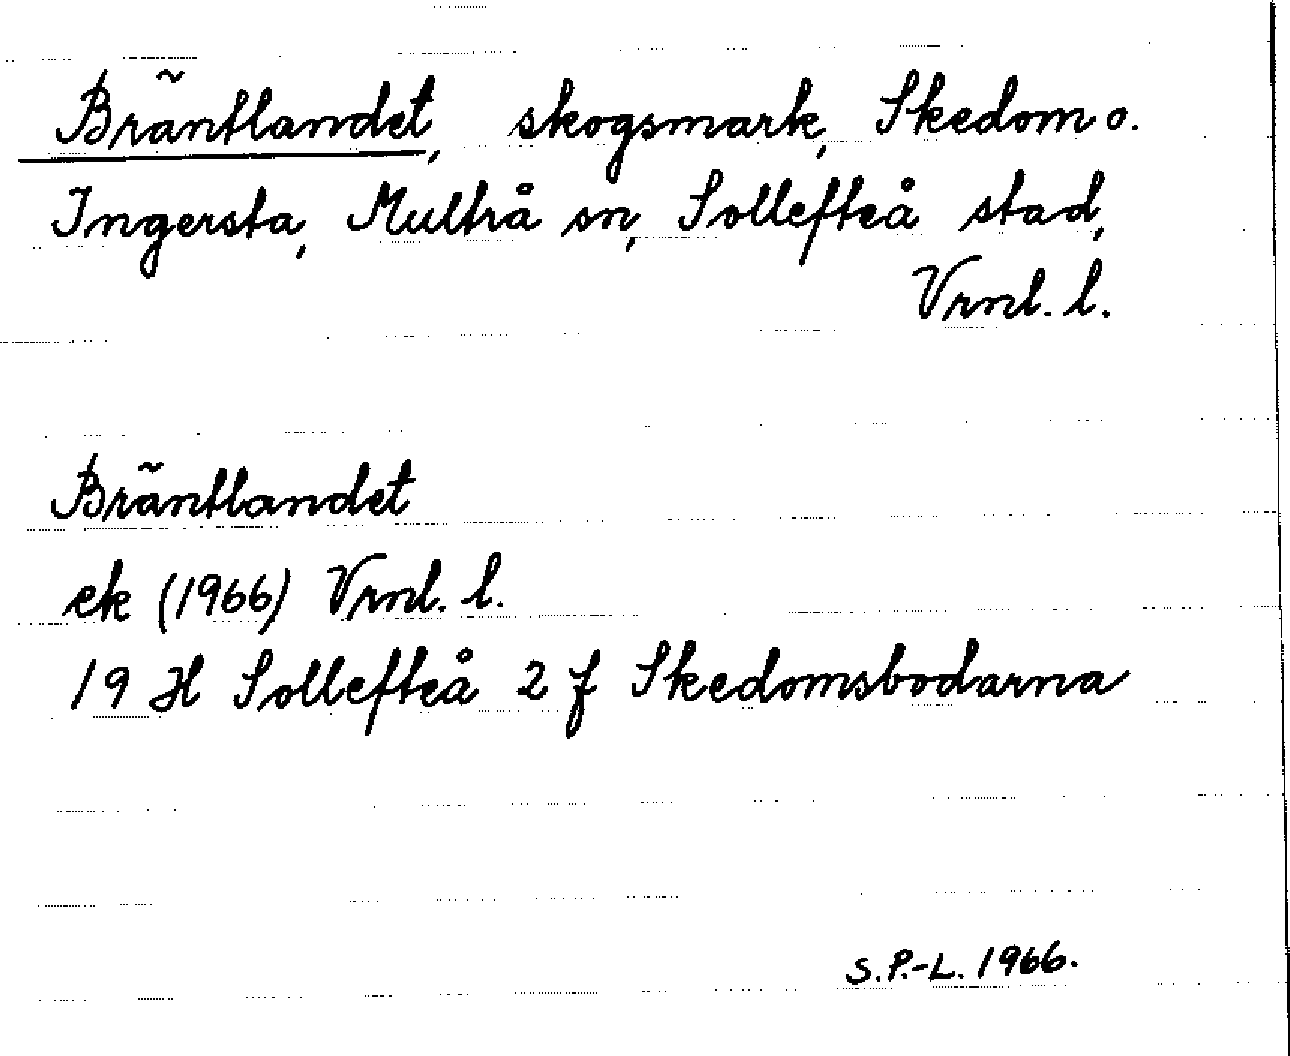 Bräntlandet, skogsmark, Skedom o.
Ingersta, Multrå sn, Sollefteå stad,
Vrnl. l.
Bräntlandet
ek (1966) Vrnl. l.
19 H Sollefteå 2 f Skedomsbodarna
S.P.-L. 1966.